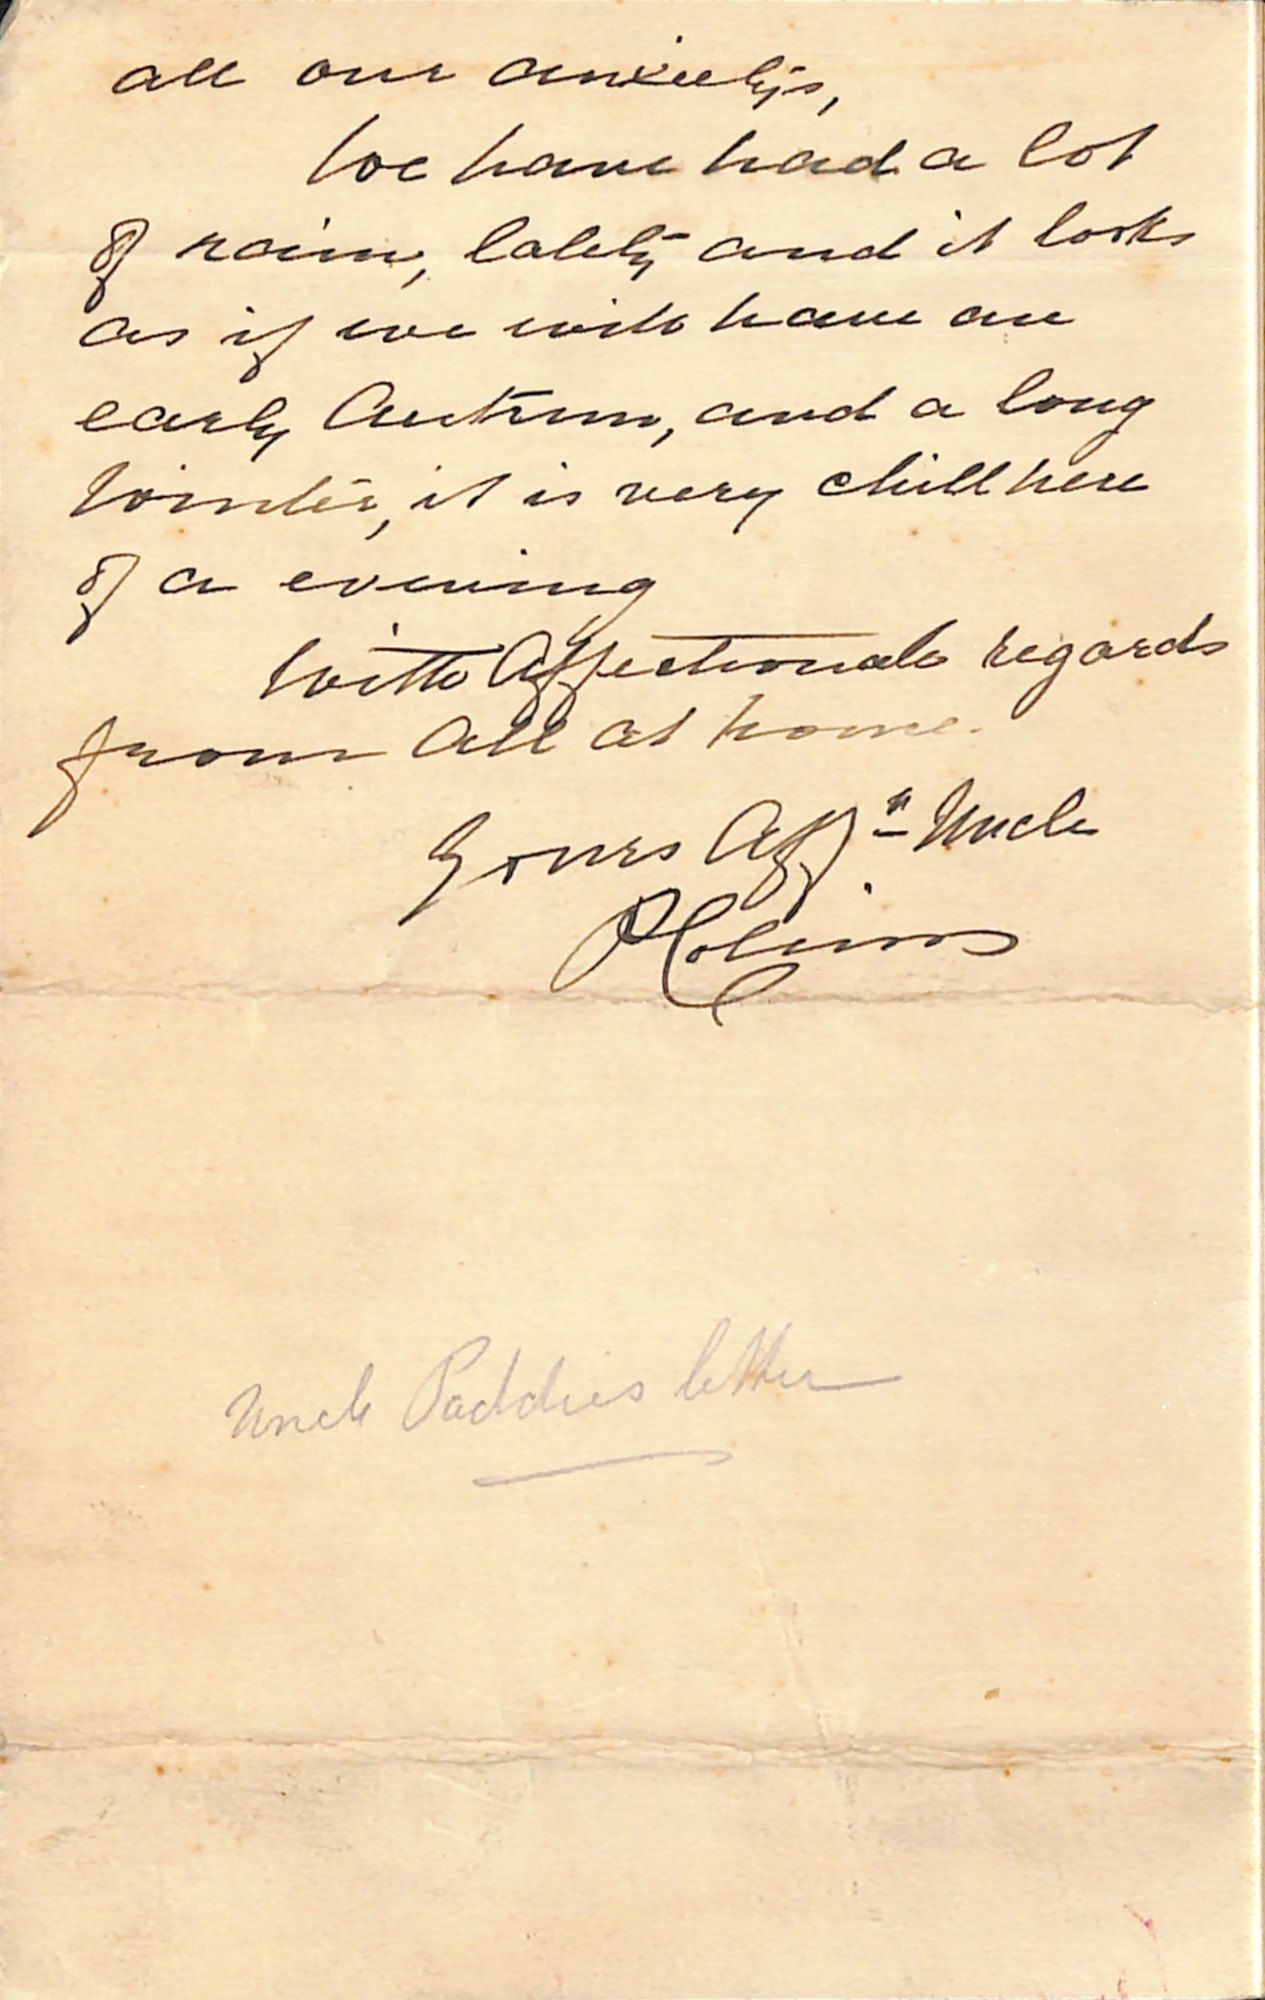 all our anxietys,
We have had a lot
of rain, lately and it looks
as if we will have an
early Autumn, and a long
Winter, it is very chill here
of a evening
With Affectionate regards
from All at home.
Yours Aff<sup>n</sup> Uncle
P Colins
Uncle Paddies letter